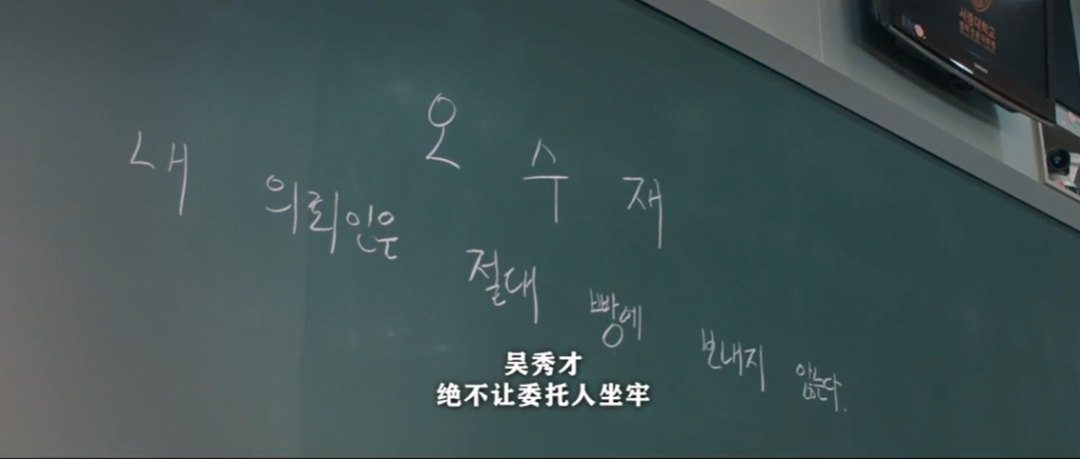 오 수 재
내 의뢰인은 절대 빵에 보내지 않는다.
吴秀才
绝不让委托人坐牢